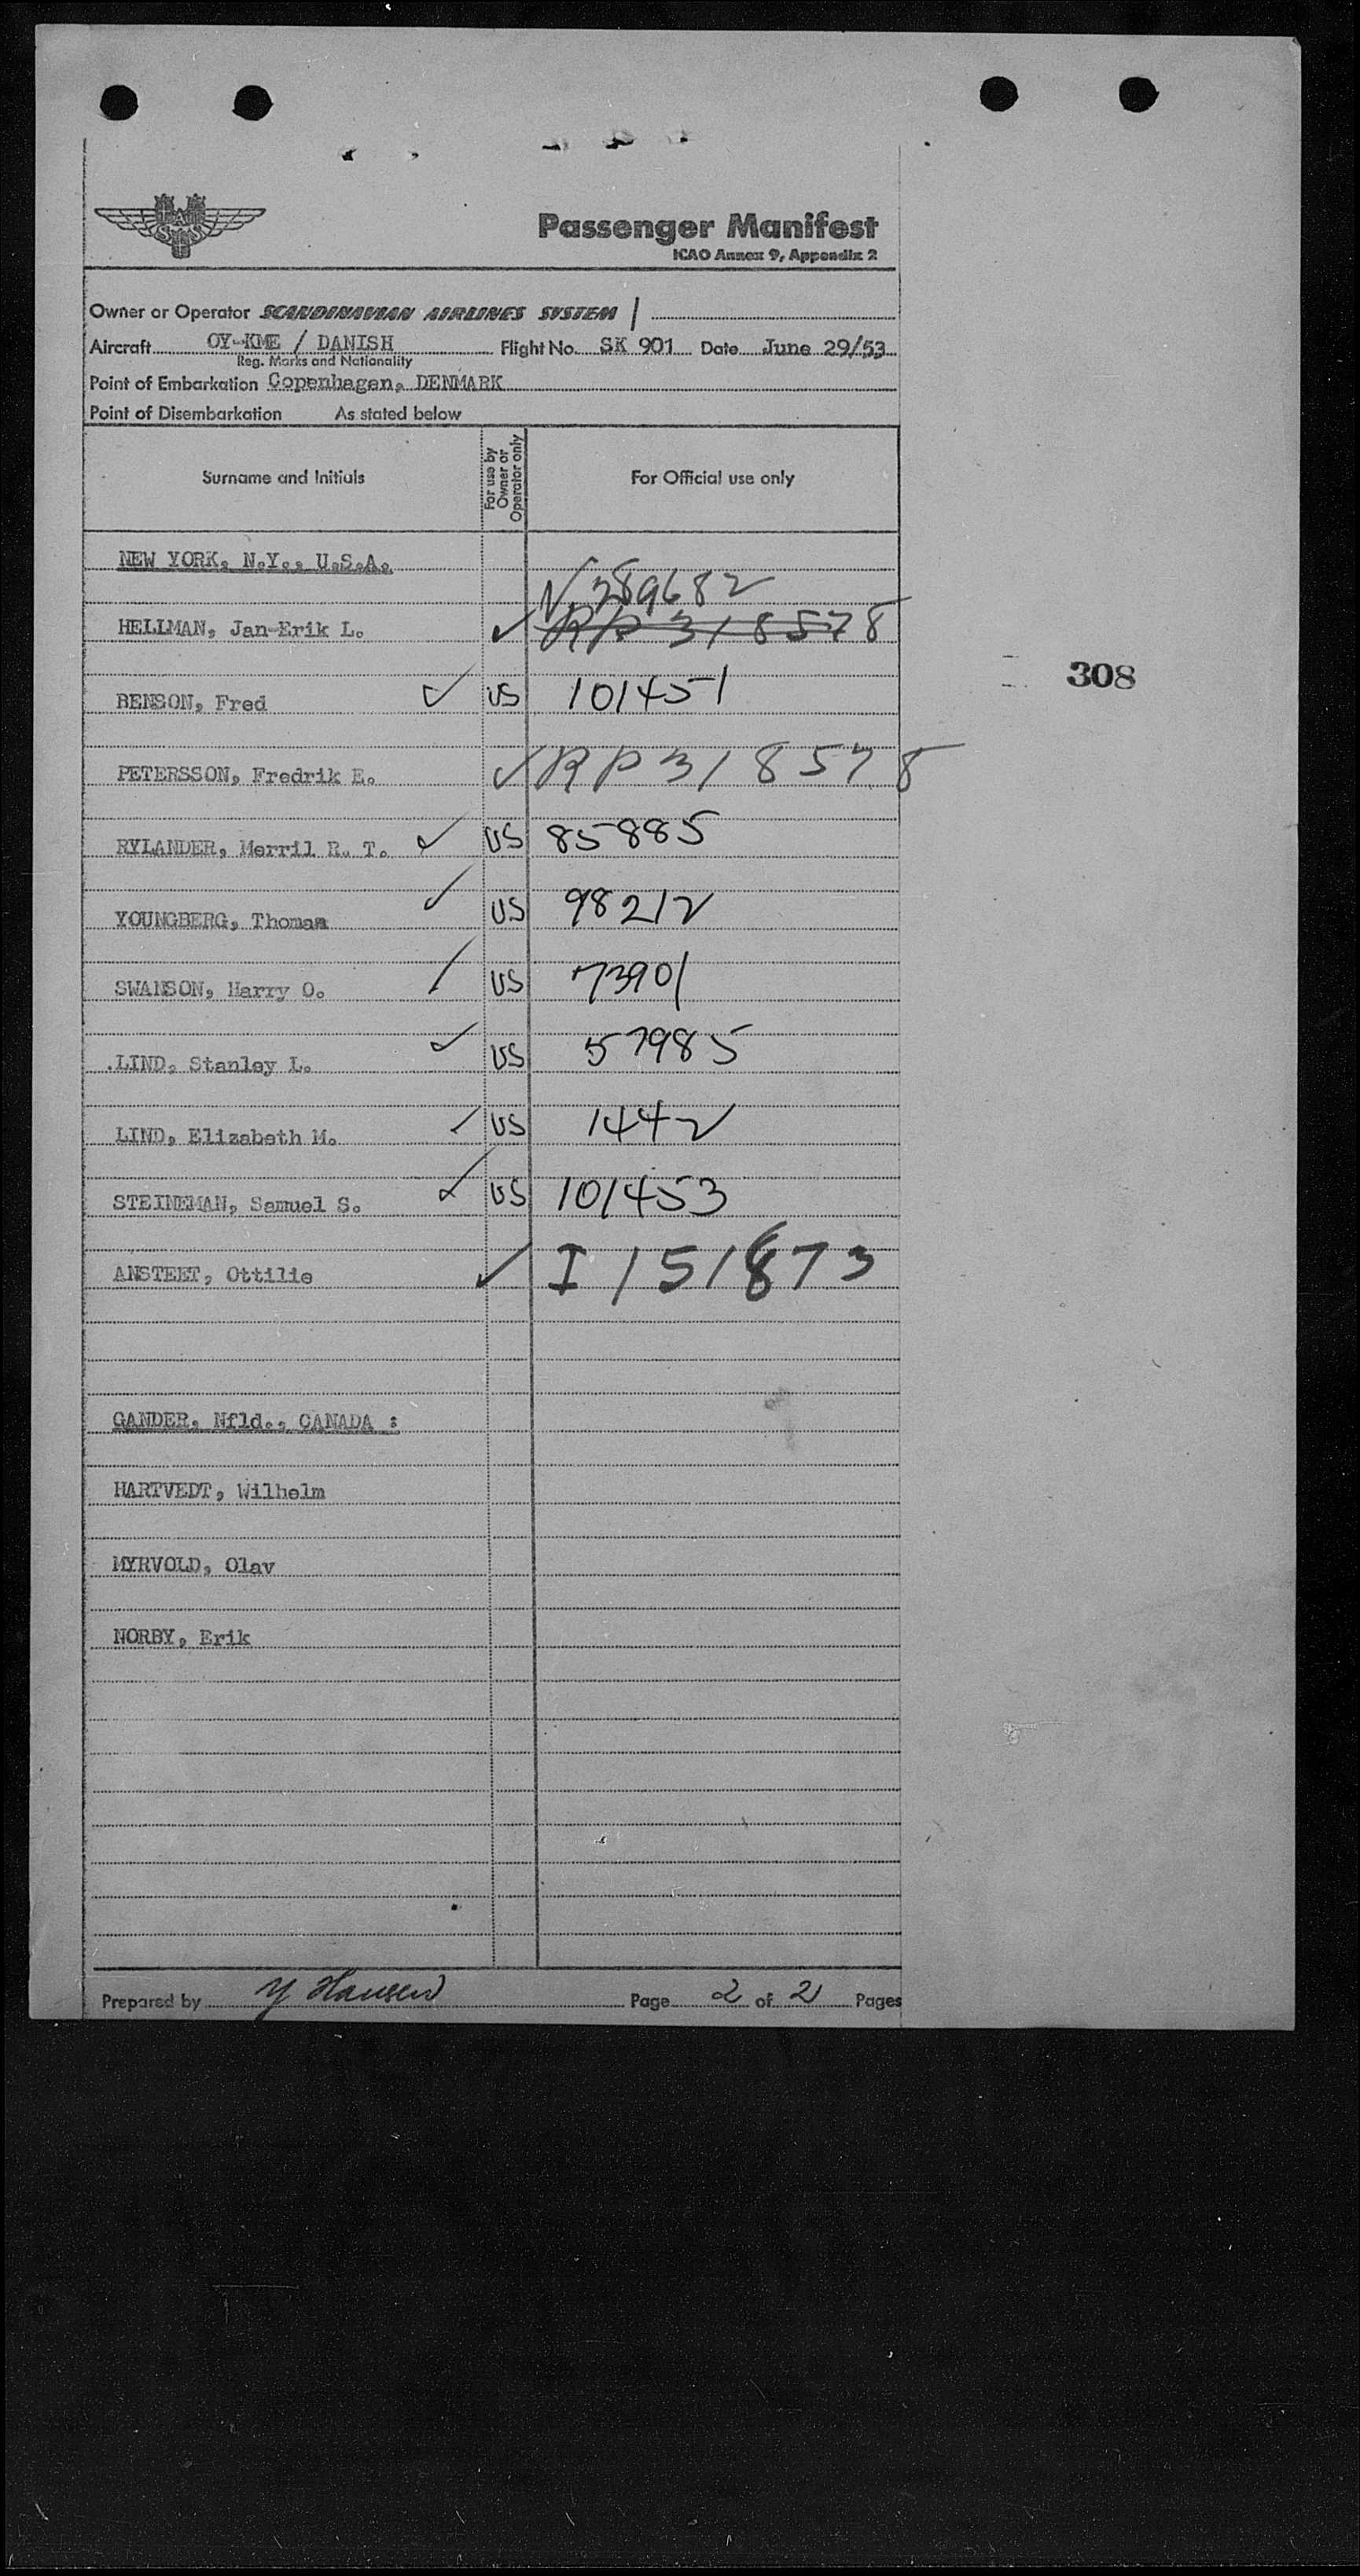 SAS
Passenger Manifest
ICAO Annex 9, Appendix 2
Owner or Operator SCANDINAVIAN AIRLINES SYSTEM
Aircraft OY-KME / DANISH Flight No. SK 901 Date June 29/53
Reg. Marks and Nationality
Point of Embarkation Copenhagen, DENMARK
Point of Disembarkation As stated below
Surname and Initials For use by Owner or Operator only For Official use only
NEW YORK, N.Y., U.S.A.
V 289682
HELLMAN, Jan-Erik L. ✓ RP 318578
308
BENSON, Fred ✓ US 101451
PETERSSON, Fredrik E. ✓ RP318578
RYLANDER, Merril R. T. ✓ US 85885
YOUNGBERG, Thomas ✓ US 98212
SWANSON, Harry O. / US 73901
.LIND, Stanley L. ✓ US 57985
LIND, Elizabeth M. ✓ US 1442
STEINEMAN, Samuel S. ✓ US 101453
ANSTEET, Ottilie ✓ I 151873
GANDER, Nfld., CANADA :
HARTVEDT, Wilhelm
MYRVOLD, Olav
NORBY, Erik
Prepared by Y Hansen Page 2 of 2 Pages